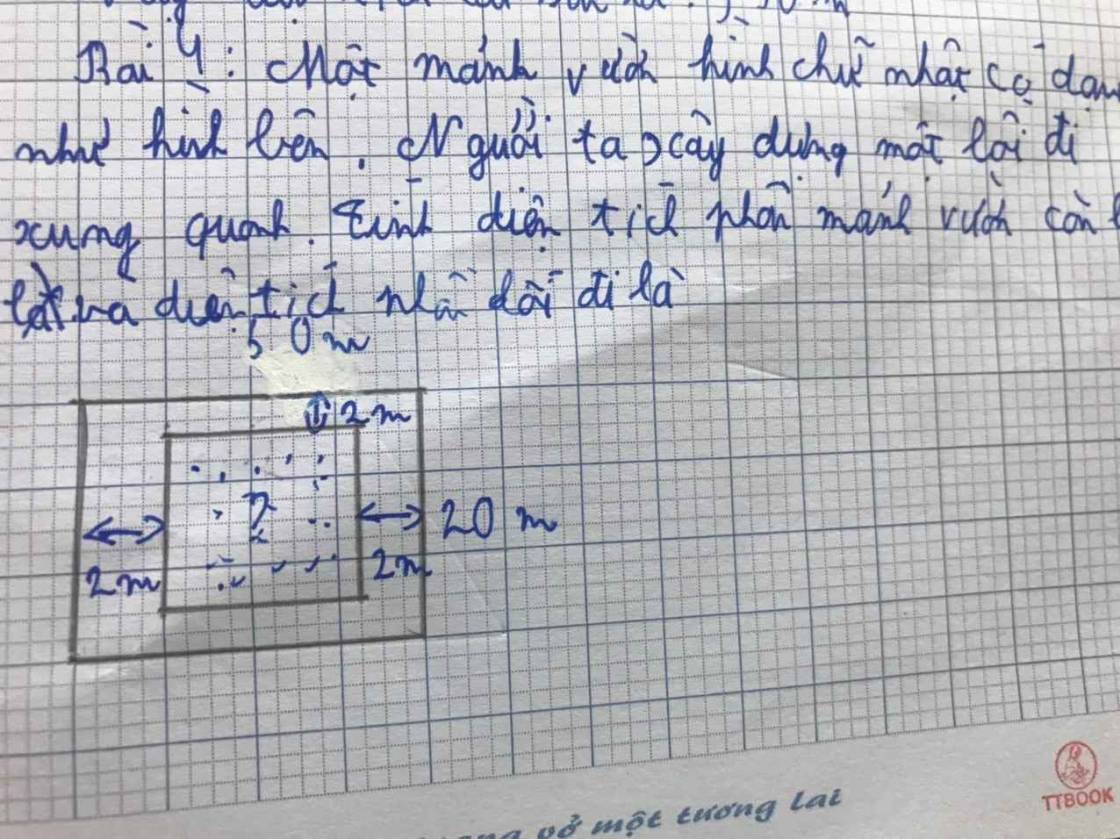 Bài 4: Một mảnh vườn hình chữ nhật có dạn
như hình bên. Người ta xây dựng một lối đi
xung quanh. Tính diện tích phần mảnh vườn còn
lại và diện tích phần lối đi là
50m
2m
?
20 m
2m
2m
vở một tương lai
TTBOOK